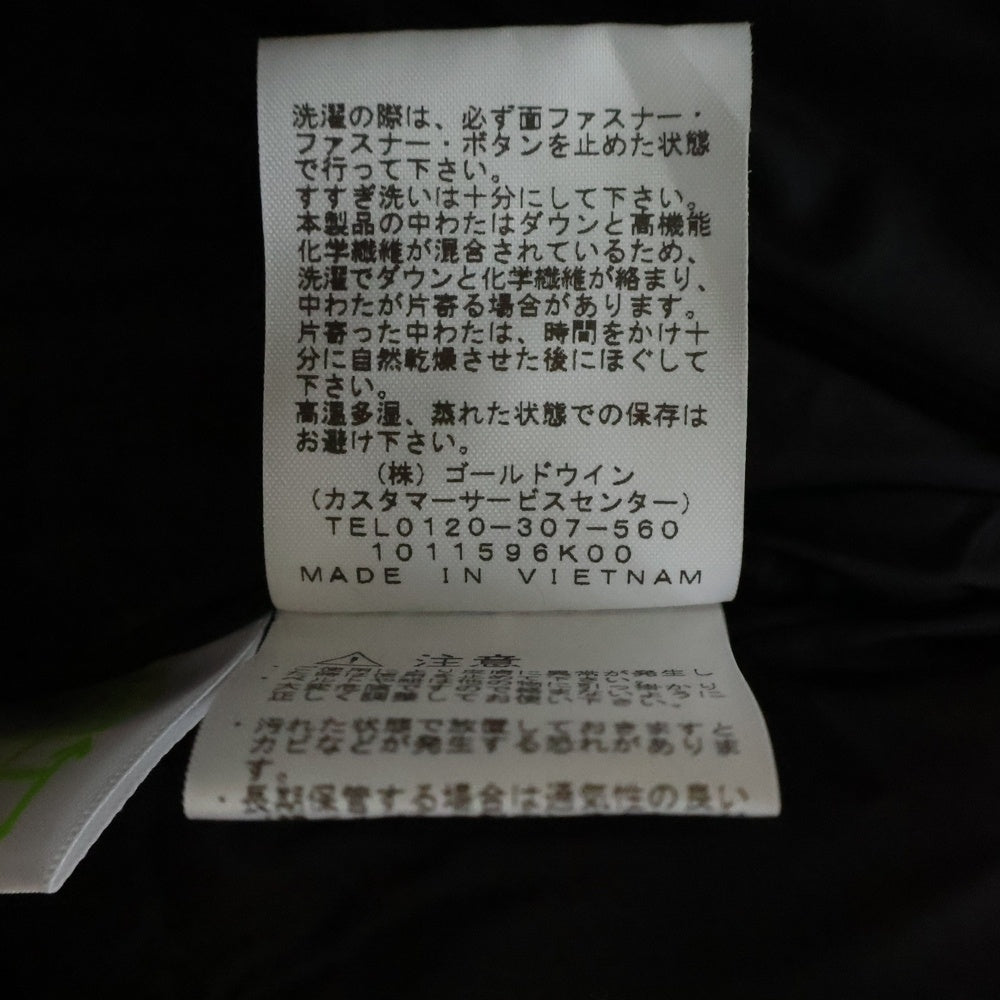 洗濯の際は、必ず面ファスナー・
ファスナー・ボタンを止めた状態
で行って下さい。
すすぎ洗いは十分にして下さい。
本製品の中わたはダウンと高機能
化学繊維が混合されているため、
洗濯でダウンと化学繊維が絡まり、
中わたが片寄る場合があります。
片寄った中わたは、時間をかけ十
分に自然乾燥させた後にほぐして
下さい。
高温多湿、蒸れた状態での保存は
お避け下さい。
(株)ゴールドウイン
(カスタマーサービスセンター)
TEL0120-307-560
1011596K00
MADE IN VIETNAM
注意
・汚れた状態で放置しておきますと
カビなどが発生する恐れがありま
す。
・長期保管する場合は通気性の良い